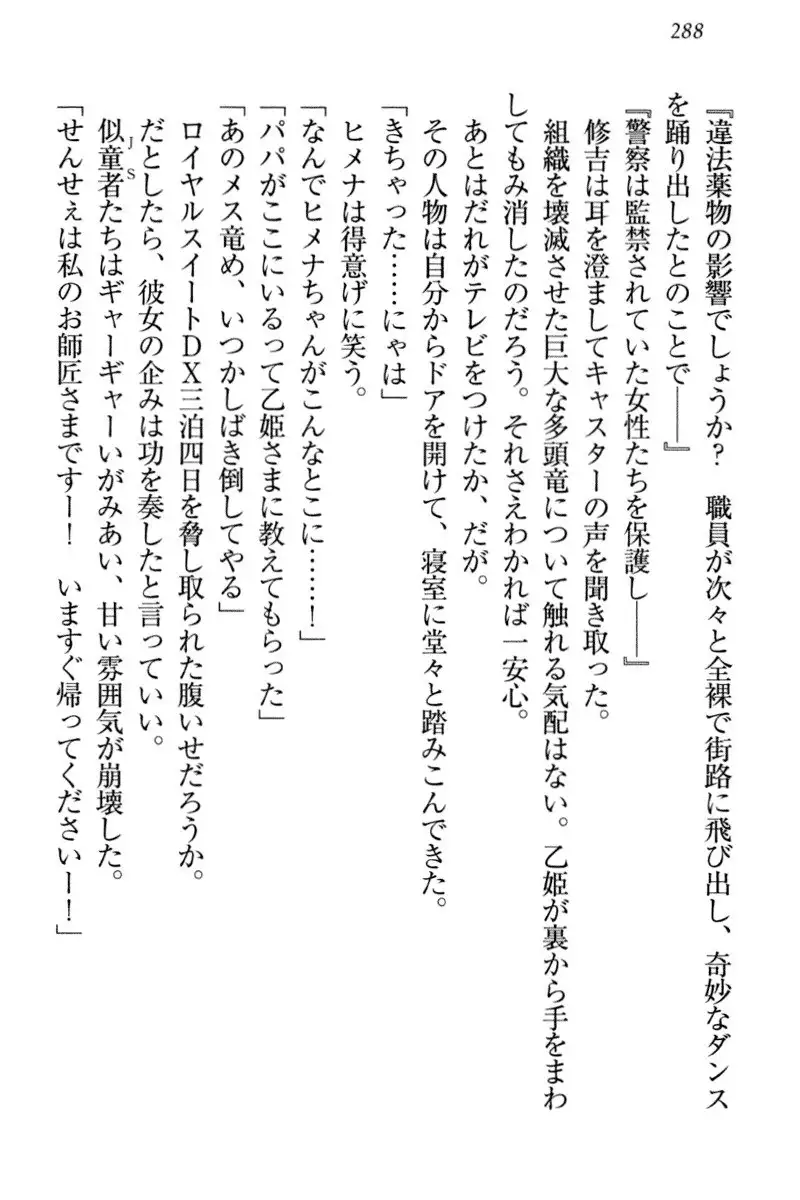 288
『違法薬物の影響でしょうか？　職員が次々と全裸で街路に飛び出し、奇妙なダンス
を踊り出したとのことで――』
『警察は監禁されていた女性たちを保護し――』
修吉は耳を澄ましてキャスターの声を聞き取った。
組織を壊滅させた巨大な多頭竜について触れる気配はない。乙姫が裏から手をまわ
してもみ消したのだろう。それさえわかれば一安心。
あとはだれがテレビをつけたか、だが。
その人物は自分からドアを開けて、寝室に堂々と踏みこんできた。
「きちゃった……にゃは」
ヒメナは得意げに笑う。
「なんでヒメナちゃんがこんなとこに……！」
「パパがここにいるって乙姫さまに教えてもらった」
「あのメス竜め、いつかしばき倒してやる」
ロイヤルスイートＤＸ三泊四日を脅し取られた腹いせだろうか。
だとしたら、彼女の企みは功を奏したと言っていい。
似童者たちはギャーギャーいがみあい、甘い雰囲気が崩壊した。
ＪＳ
「せんせぇは私のお師匠さまですー！　いますぐ帰ってくださいー！」